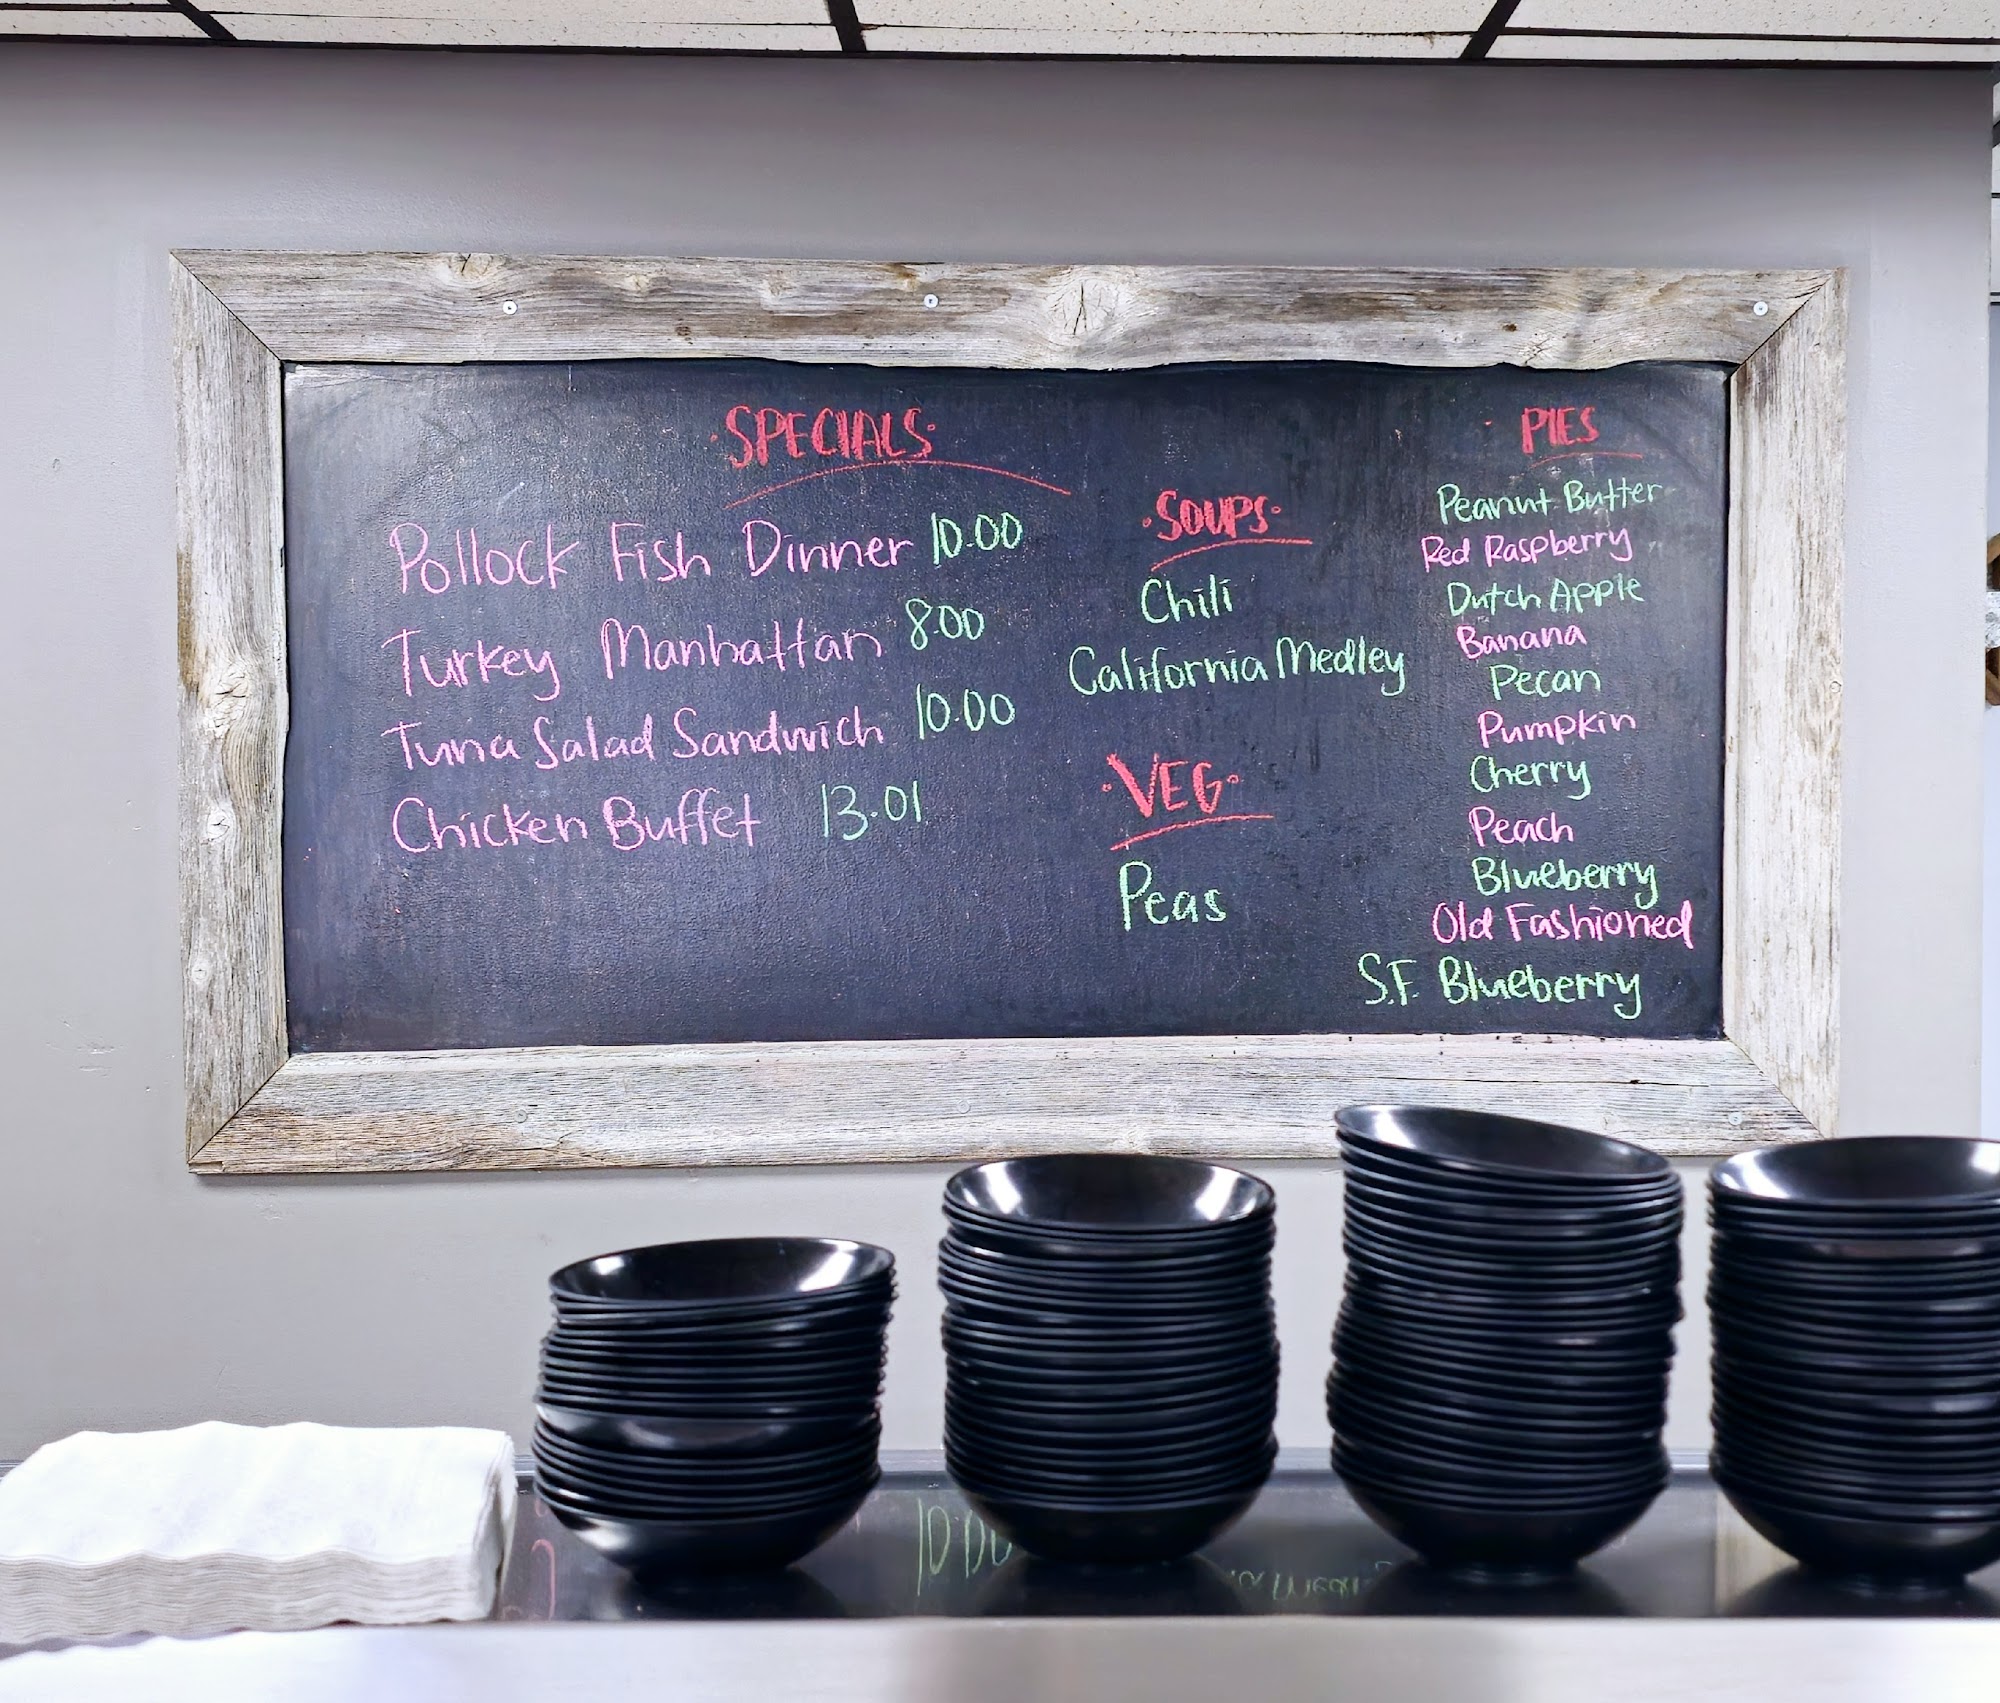 ·SPECIALS·
Pollock Fish Dinner 10.00
Turkey Manhattan 8.00
Tuna Salad Sandwich 10.00
Chicken Buffet 13.01
·SOUPS·
Chili
California Medley
·VEG·
Peas
· PIES
Peanut Butter
Red Raspberry
Dutch Apple
Banana
Pecan
Pumpkin
Cherry
Peach
Blueberry
Old Fashioned
S.F. Blueberry